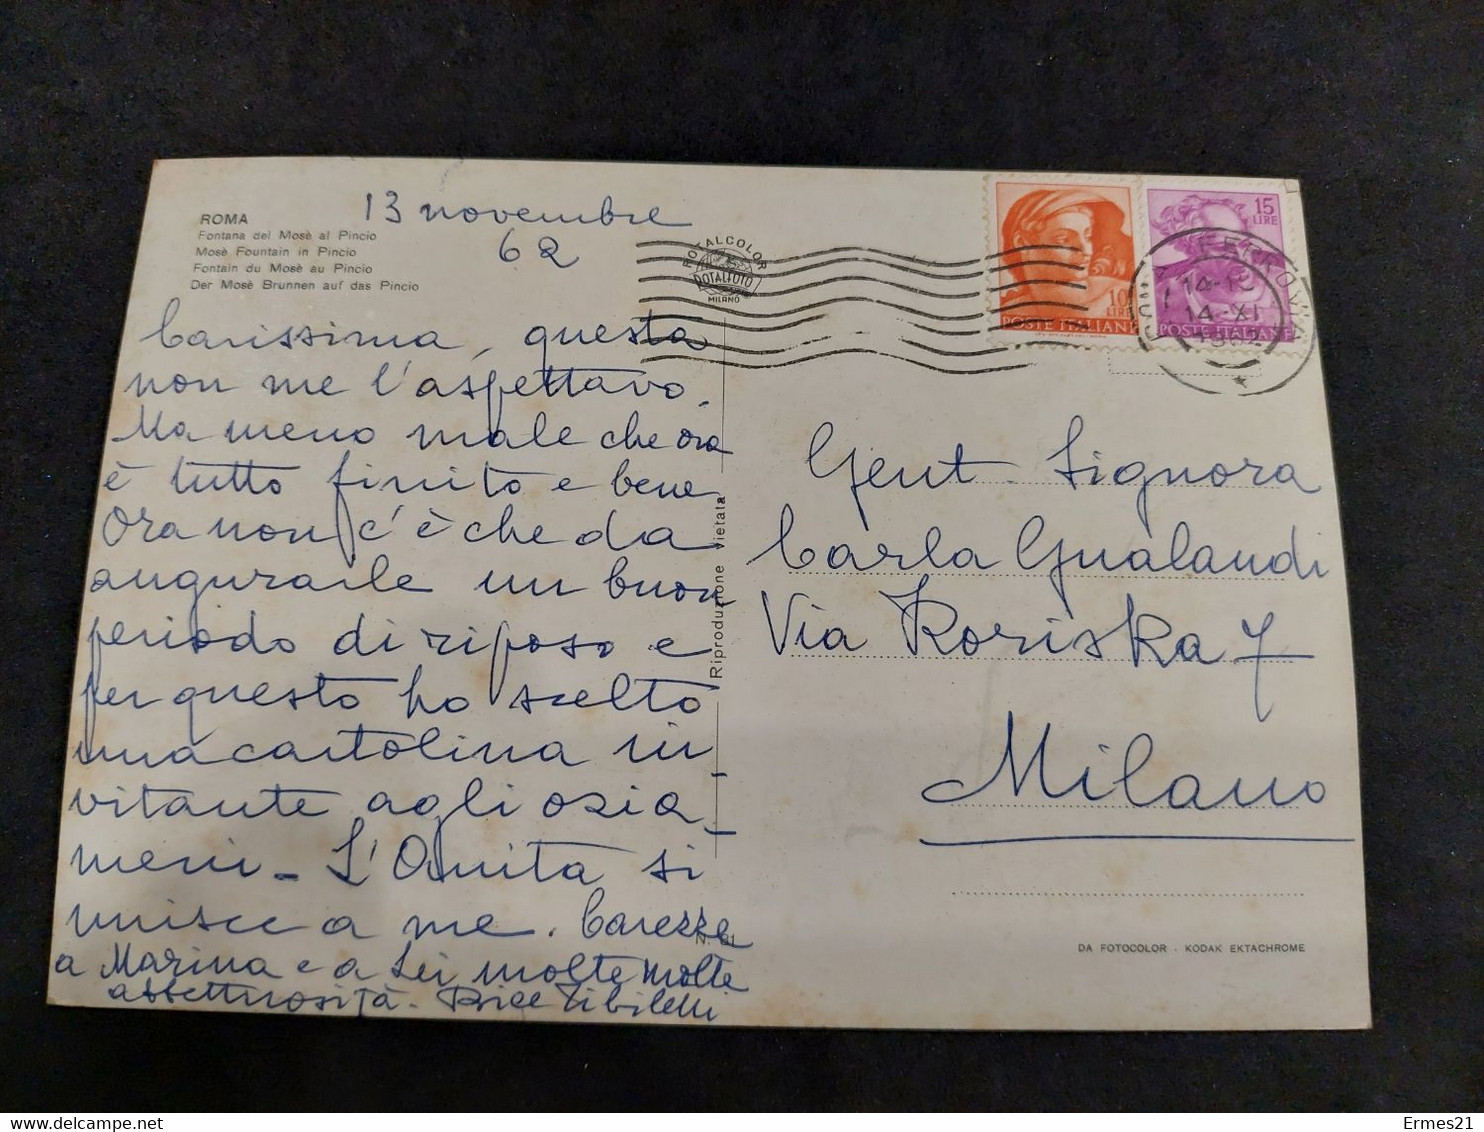 ROMA
Fontana del Mosè al Pincio
Mosè Fountain in Pincio
Fontain du Mosè au Pincio
Der Mosè Brunnen auf das Pincio
13 novembre
62
Carissima, questa
non me l'aspettavo.
Ma meno male che ora
è tutto finito e bene
Ora non c'è che da
augurarle un buon
periodo di riposo e
per questo ho scelto
una cartolina in-
vitante agli ozia-
meni - L'Anita si
unisce a me. Carezze
a Marina e a Lei molte molte
affettuosità. Bice Tibiletti
ROTALCOLOR
ROTALFOTO
MILANO
10
LIRE
POSTE ITALIANE
15
LIRE
POSTE ITALIANE
14-XI
1962
Riproduzione vietata
Gent. Signora
Carla Gualandi
Via Koriska 7
Milano
DA FOTOCOLOR - KODAK EKTACHROME
Ermes21